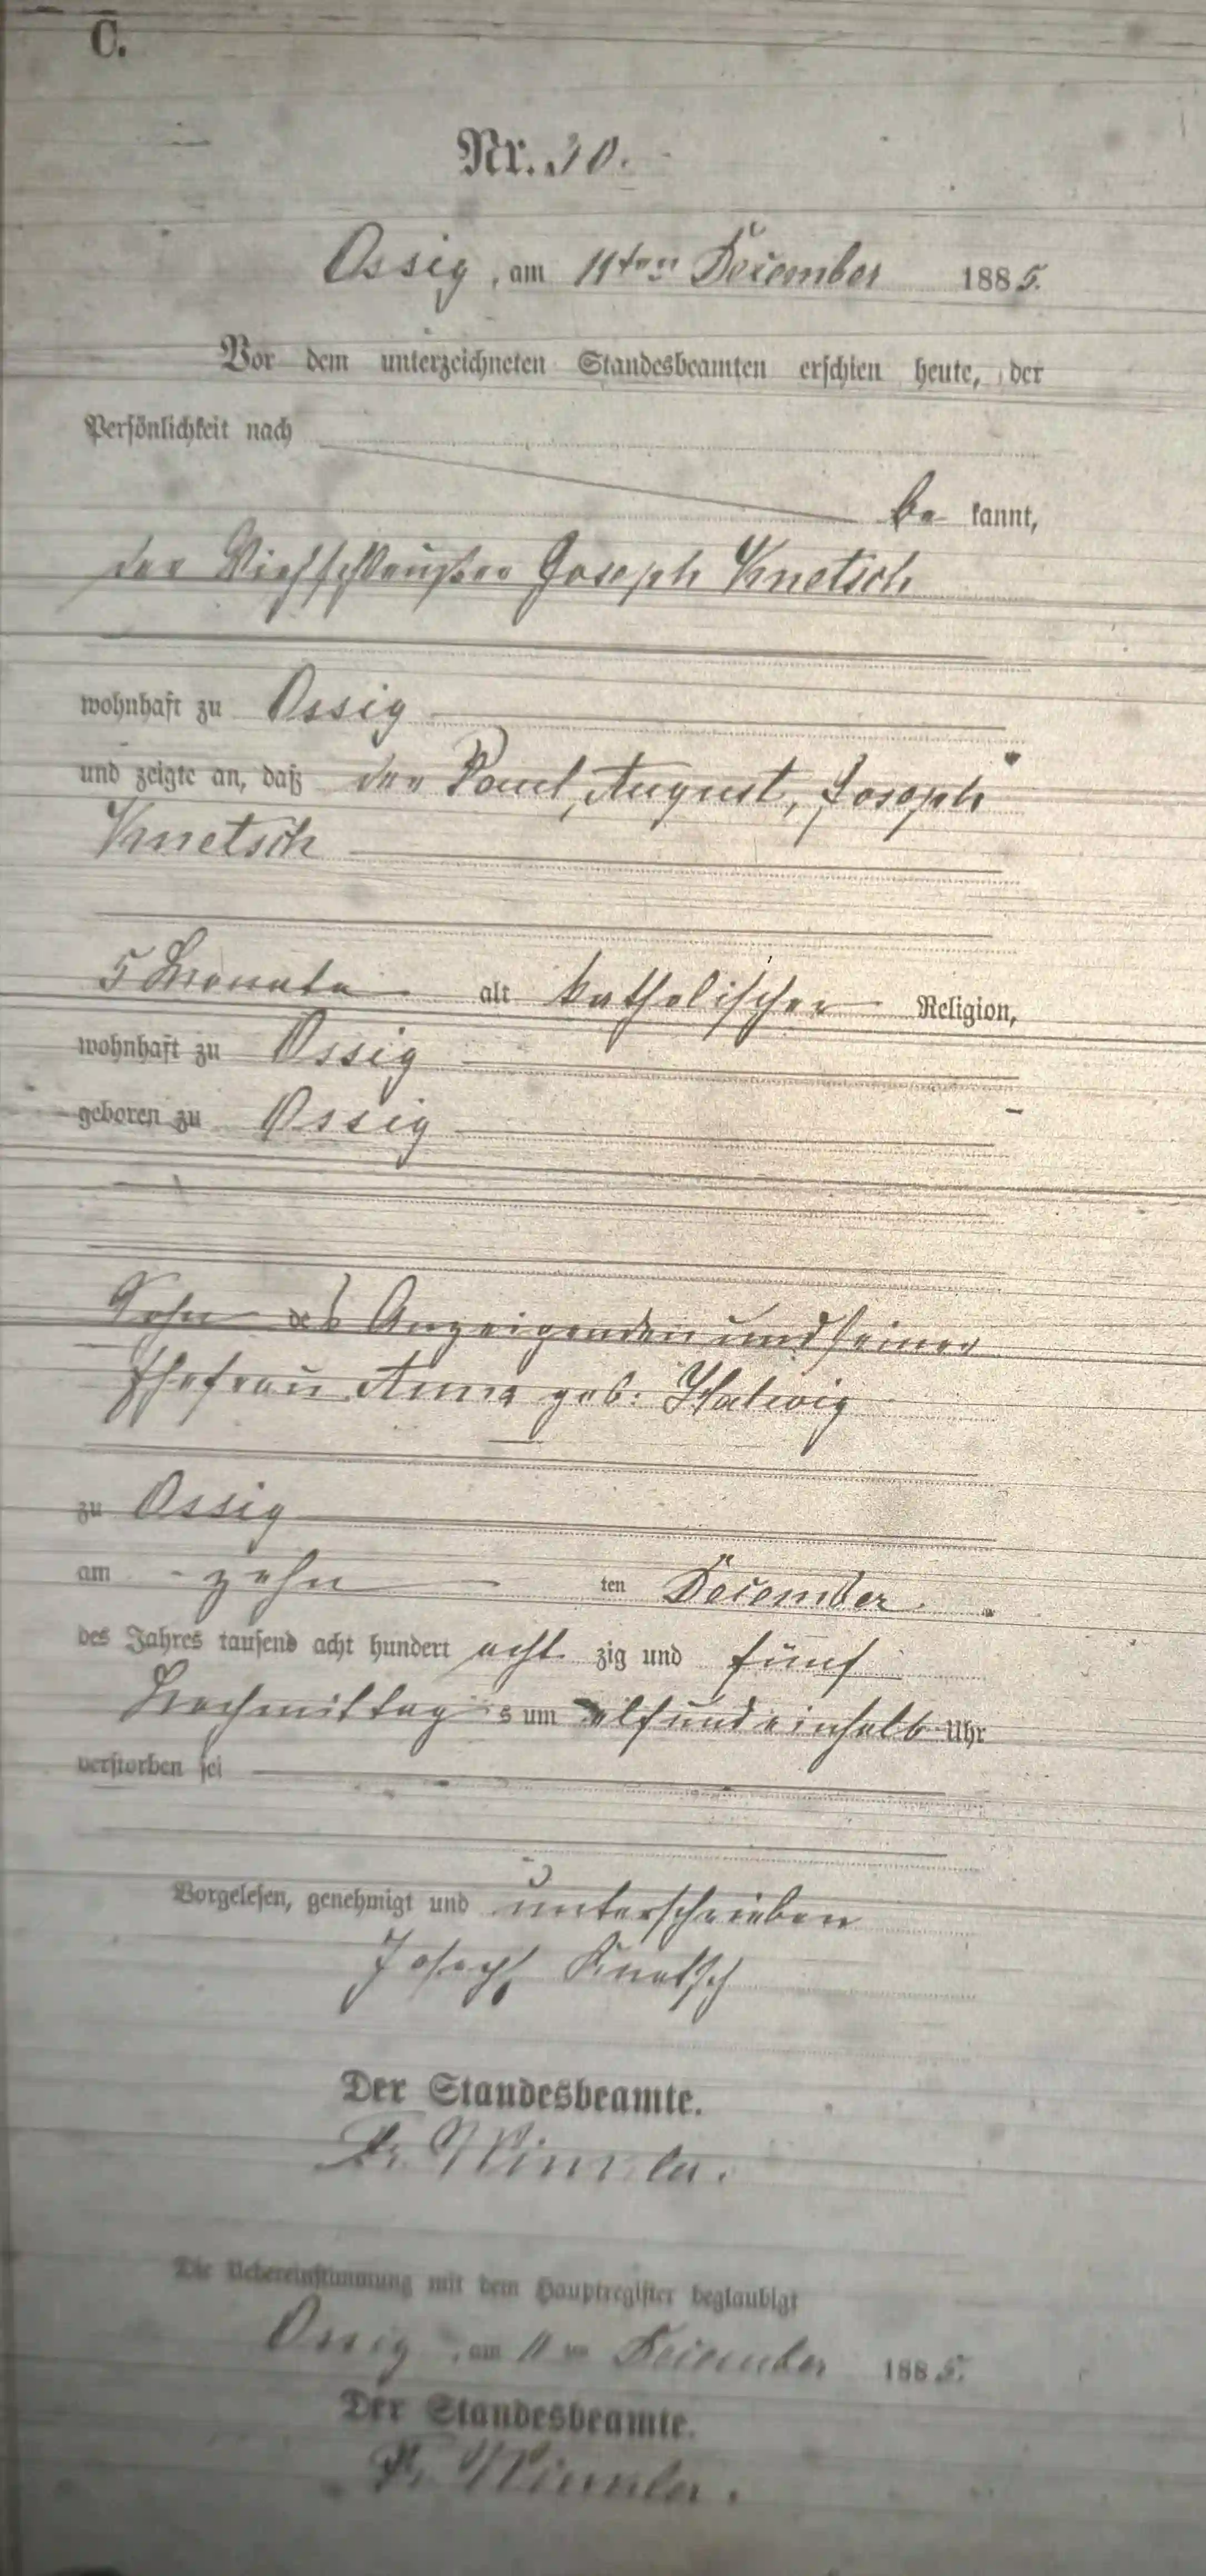 C.
Nr. 30.
Ossig, am 11ten December 1885.
Vor dem unterzeichneten Standesbeamten erschien heute, der
Persönlichkeit nach
be kannt,
der Viehschleußer Joseph Knetsch
wohnhaft zu Ossig
und zeigte an, daß der Paul, August, Joseph
Knetsch
5 Monate alt katholischer Religion,
wohnhaft zu Ossig
geboren zu Ossig
Sohn des Anzeigenden und seiner
Ehefrau Anna geb.
zu Ossig
am zehn ten December
des Jahres tausend acht hundert acht zig und fünf
Nachmittag s um elf und einhalb Uhr
verstorben sei
Vorgelesen, genehmigt und unterschrieben
Joseph Knetsch
Der Standesbeamte.
Die Uebereinstimmung mit dem Hauptregister beglaubigt
Ossig, am 11ten December 1885.
Der Standesbeamte.